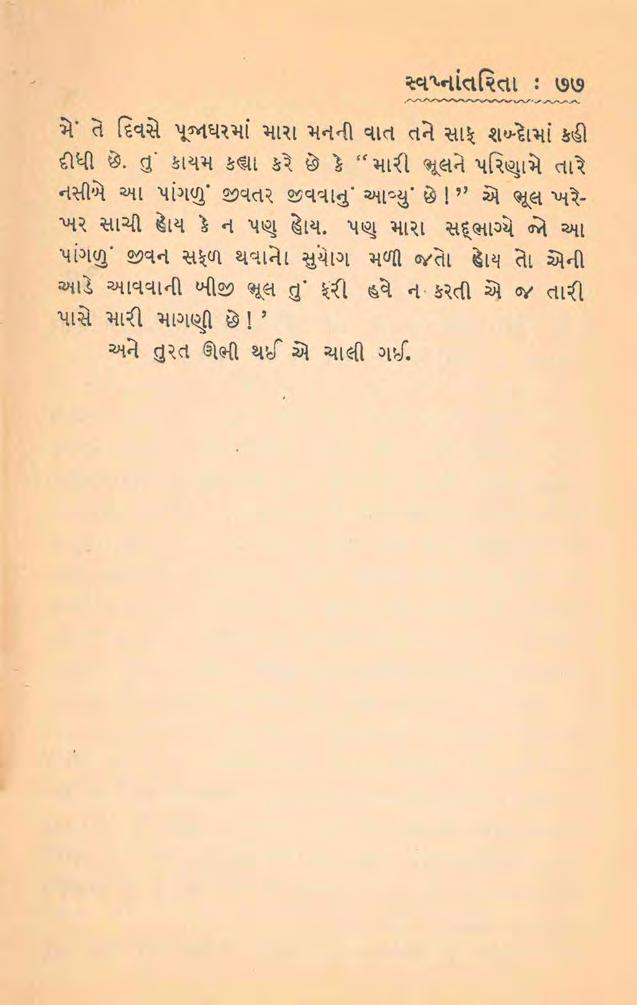 સ્વપ્નાંતરિતા : ૭૭
મેં તે દિવસે પૂજાઘરમાં મારા મનની વાત તને સાફ શબ્દોમાં કહી
દીધી છે. તું કાયમ કહ્યા કરે છે કે “મારી ભૂલને પરિણામે તારે
નસીબે આ પાંગળું જીવતર જીવવાનું આવ્યું છે!” એ ભૂલ ખરે-
ખર સાચી હોય કે ન પણ હોય. પણ મારા સદ્ભાગ્યે જો આ
પાંગળું જીવન સફળ થવાનો સુયોગ મળી જતો હોય તો એની
આડે આવવાની બીજી ભૂલ તું ફરી હવે ન કરતી એ જ તારી
પાસે મારી માગણી છે!’
અને તુરત ઊભી થઈ એ ચાલી ગઈ.